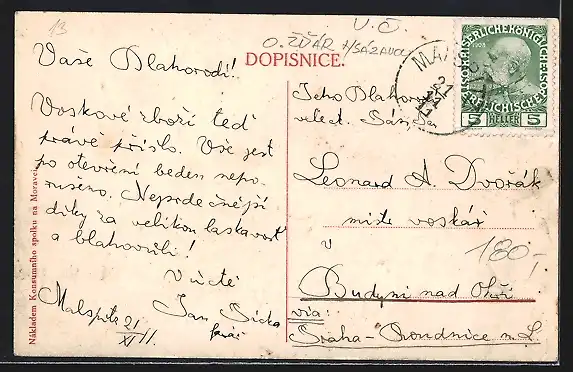 13
V. Č.
O. ŽĎÁR n/SÁZAVOU
DOPISNICE.
Vaše Blahorodí!
Voskové zboží teď
právě přišlo. Vše jest
po otevření beden nepo-
rušeno. Nejsrdečnější
díky za velikou laskavost
a blahovůli!
V úctě
Malspitz 21/XI 11.
Jan Sicka
farář
Nákladem Konsumního spolku na Moravci.
KAISERLICHE KÖNIGLICHE
1908
ÖSTERREICHISCHE POST
5 HELLER 5
Jeho Blahorodí
velect. Pán, Pan
Leonard A. Dvořák
mistr voskář
v
180,-
Budyni nad Ohří
via:
Praha - Roudnice n. L.